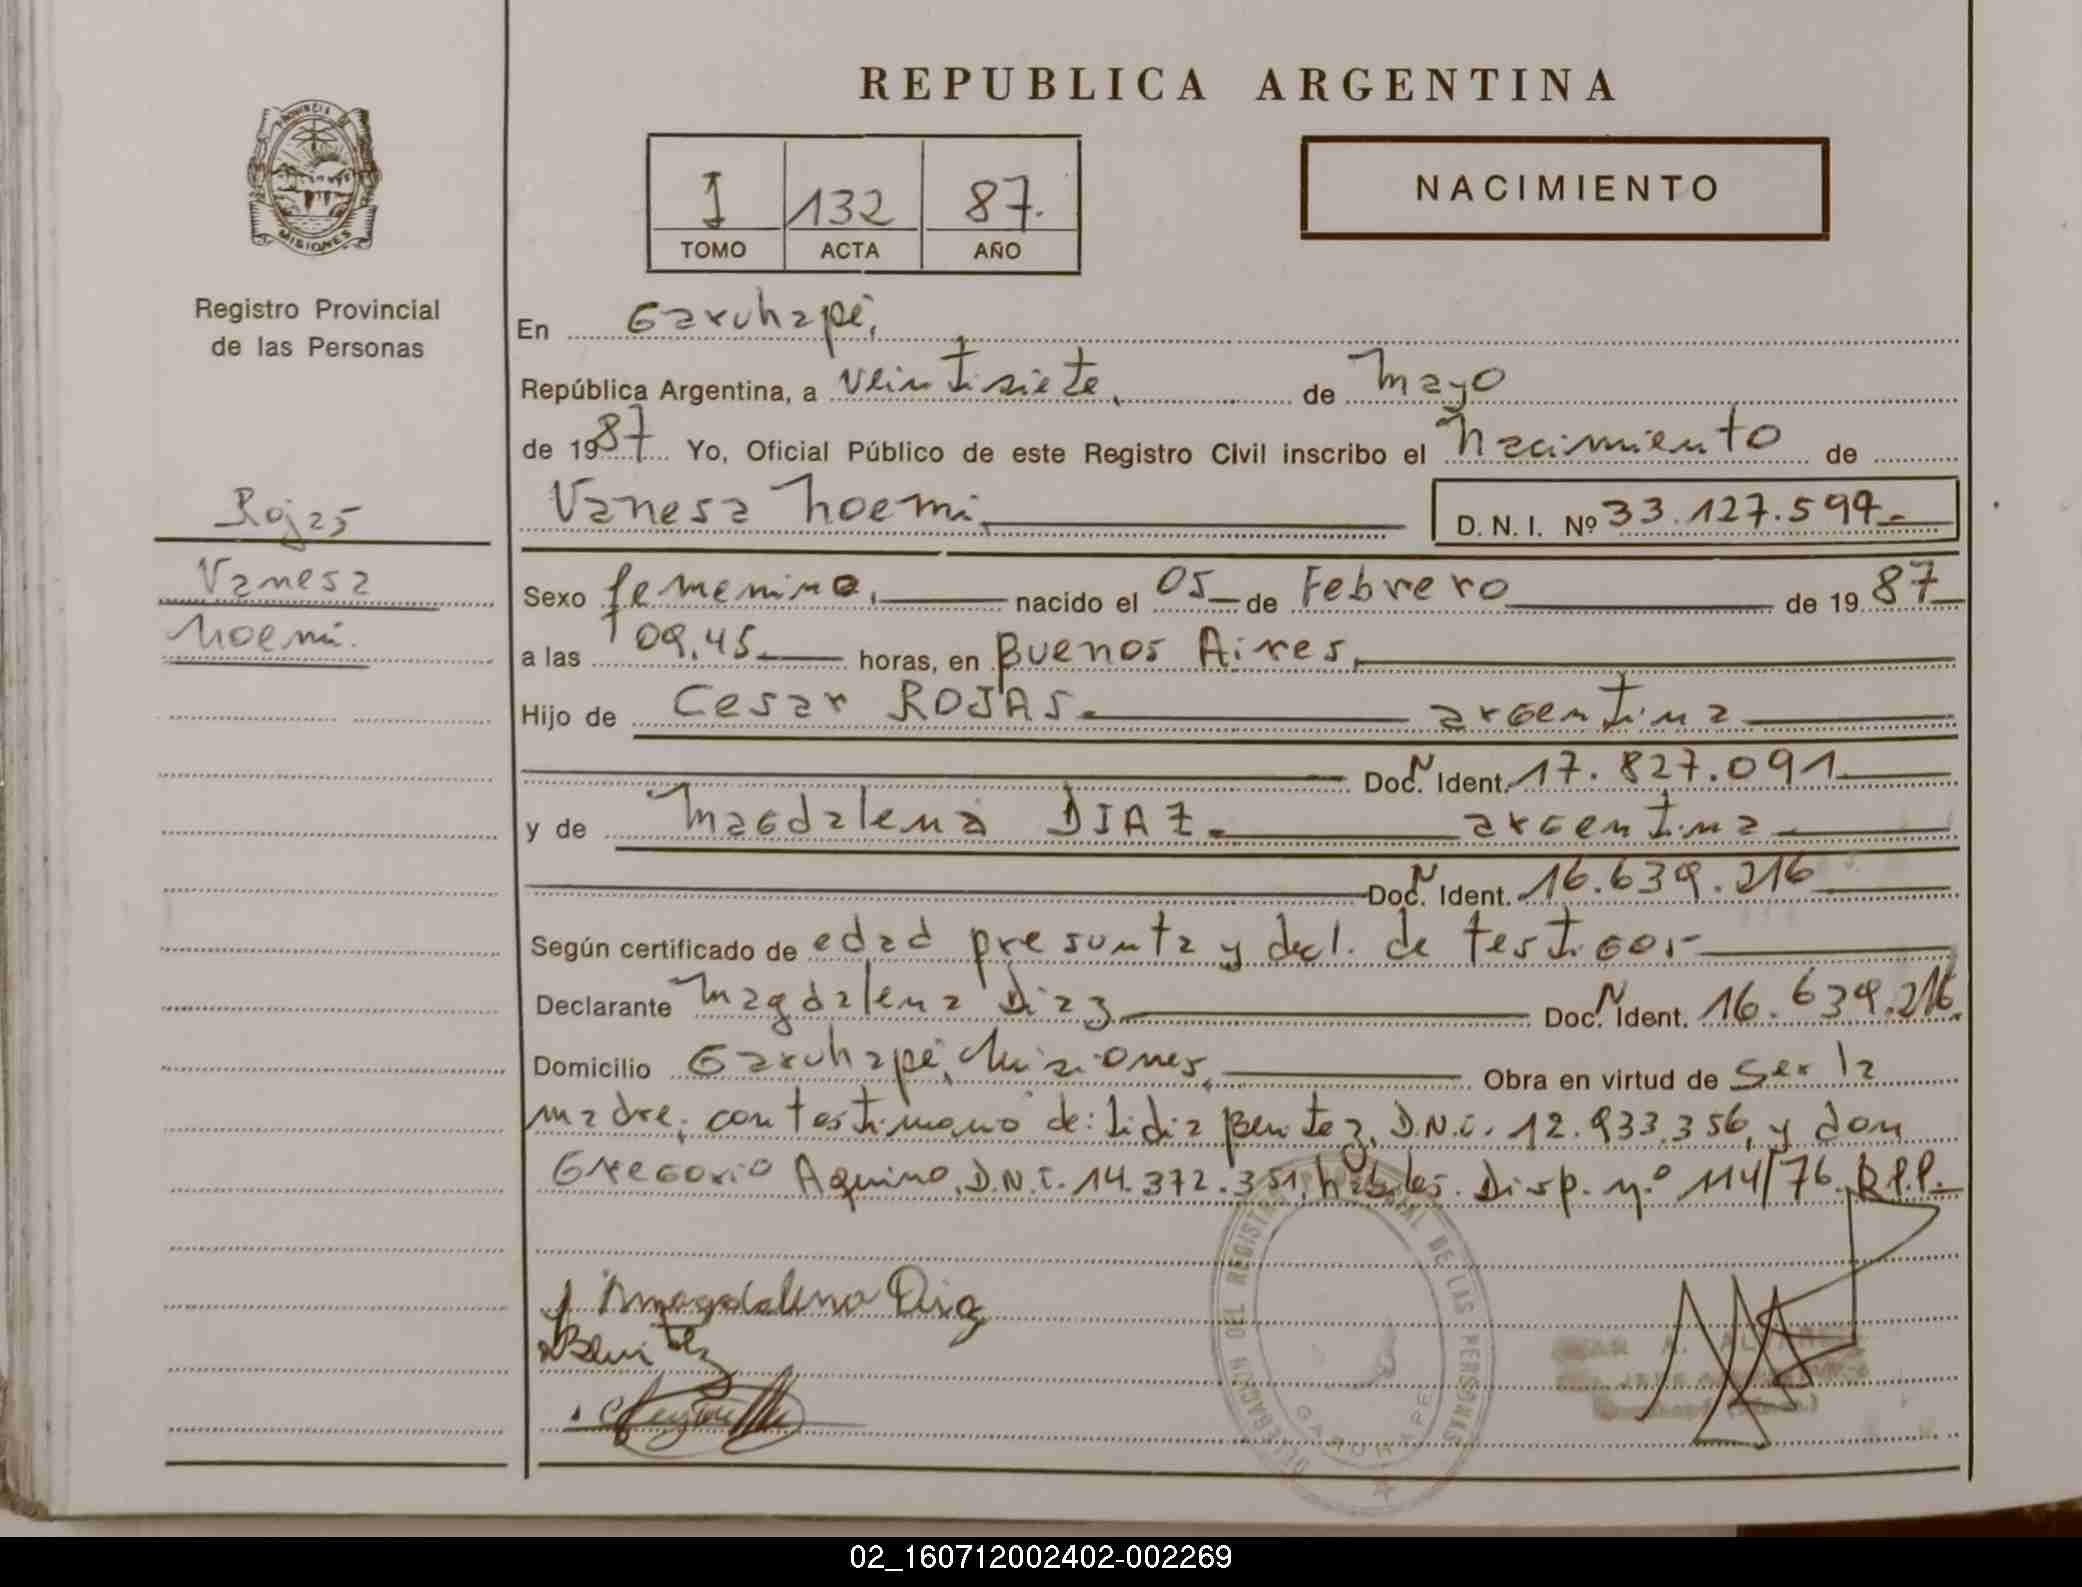 REPUBLICA ARGENTINA
PROVINCIA DE
MISIONES
Registro Provincial
de las Personas
I 132 87.
TOMO ACTA AÑO
NACIMIENTO
En Garuhapé,
República Argentina, a veintisiete, de mayo
de 1987 Yo, Oficial Público de este Registro Civil inscribo el nacimiento de
Rojas
Vanesa
noemi.
Vanesa noemi, D. N. I. Nº 33.127.597.-
Sexo femenino, nacido el 05 de Febrero de 19 87
a las 09,45 horas, en Buenos Aires,
Hijo de Cesar ROJAS. argentina
Doc. N Ident. 17.827.091
y de Magdalena DIAZ. argentina
Doc. N Ident. 16.639.216
Según certificado de edad presunta y decl. de testigos
Declarante Magdalena Diaz Doc. N Ident. 16.639.216.
Domicilio Garuhapé, Misiones, Obra en virtud de Ser la
madre, con testimonio de: Lidia Benitez, D.N.i. 12.933.356, y don
Gregorio Aquino, D.N.I. 14.372.351, habiles. Disp. n.º 114/76. R.P.P.-
Magdalena Diaz
Benitez
DELEGACION DEL REGISTRO PROVINCIAL DE LAS PERSONAS
GARUHAPE
02_160712002402-002269